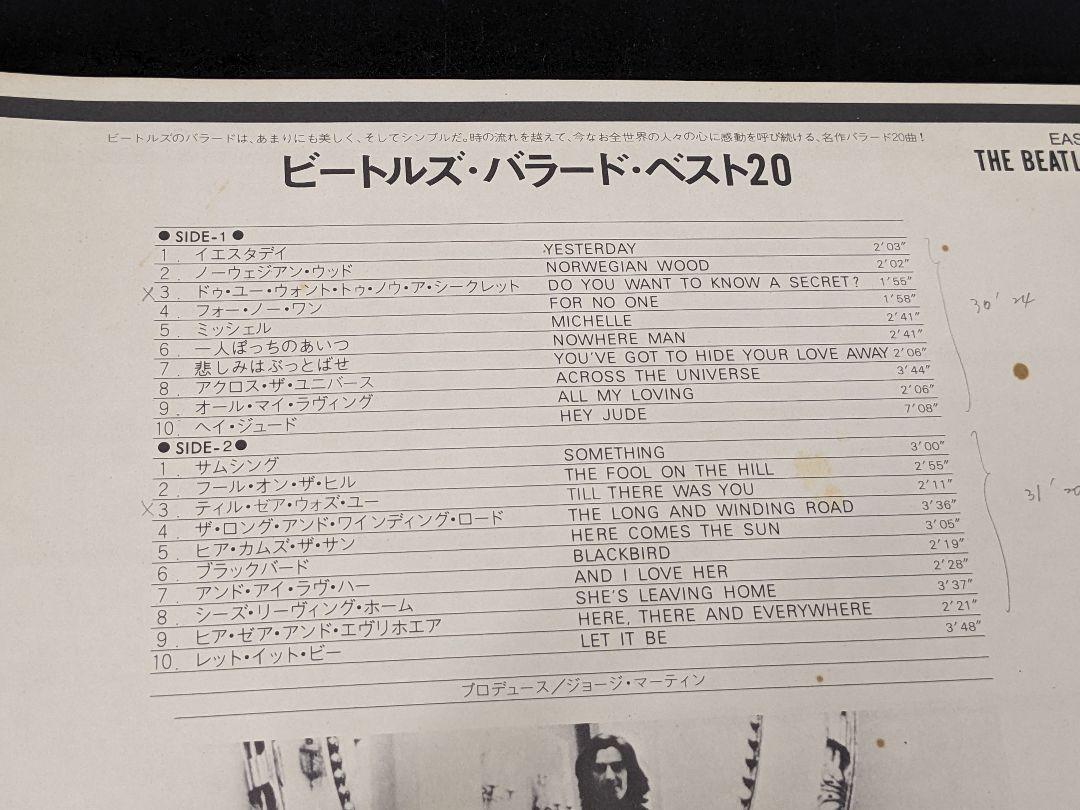 ビートルズのバラードは、あまりにも美しく、そしてシンプルだ。時の流れを越えて、今なお全世界の人々の心に感動を呼び続ける、名作バラード20曲!
EAS
ビートルズ・バラード・ベスト20
THE BEATL
●SIDE-1●
1. イエスタデイ YESTERDAY 2'03"
2. ノーウェジアン・ウッド NORWEGIAN WOOD 2'02"
×3. ドゥ・ユー・ウォント・トゥ・ノウ・ア・シークレット DO YOU WANT TO KNOW A SECRET? 1'55"
4. フォー・ノー・ワン FOR NO ONE 1'58"
5. ミッシェル MICHELLE 2'41"
6. 一人ぼっちのあいつ NOWHERE MAN 2'41"
7. 悲しみはぶっとばせ YOU'VE GOT TO HIDE YOUR LOVE AWAY 2'06"
8. アクロス・ザ・ユニバース ACROSS THE UNIVERSE 3'44"
9. オール・マイ・ラヴィング ALL MY LOVING 2'06"
10. ヘイ・ジュード HEY JUDE 7'08"
30', 24
●SIDE-2●
1. サムシング SOMETHING 3'00"
2. フール・オン・ザ・ヒル THE FOOL ON THE HILL 2'55"
×3. ティル・ゼア・ウォズ・ユー TILL THERE WAS YOU 2'11"
4. ザ・ロング・アンド・ワインディング・ロード THE LONG AND WINDING ROAD 3'36"
5. ヒア・カムズ・ザ・サン HERE COMES THE SUN 3'05"
6. ブラックバード BLACKBIRD 2'19"
7. アンド・アイ・ラヴ・ハー AND I LOVE HER 2'28"
8. シーズ・リーヴィング・ホーム SHE'S LEAVING HOME 3'37"
9. ヒア・ゼア・アンド・エヴリホエア HERE, THERE AND EVERYWHERE 2'21"
10. レット・イット・ビー LET IT BE 3'48"
31',
プロデュース/ジョージ・マーティン